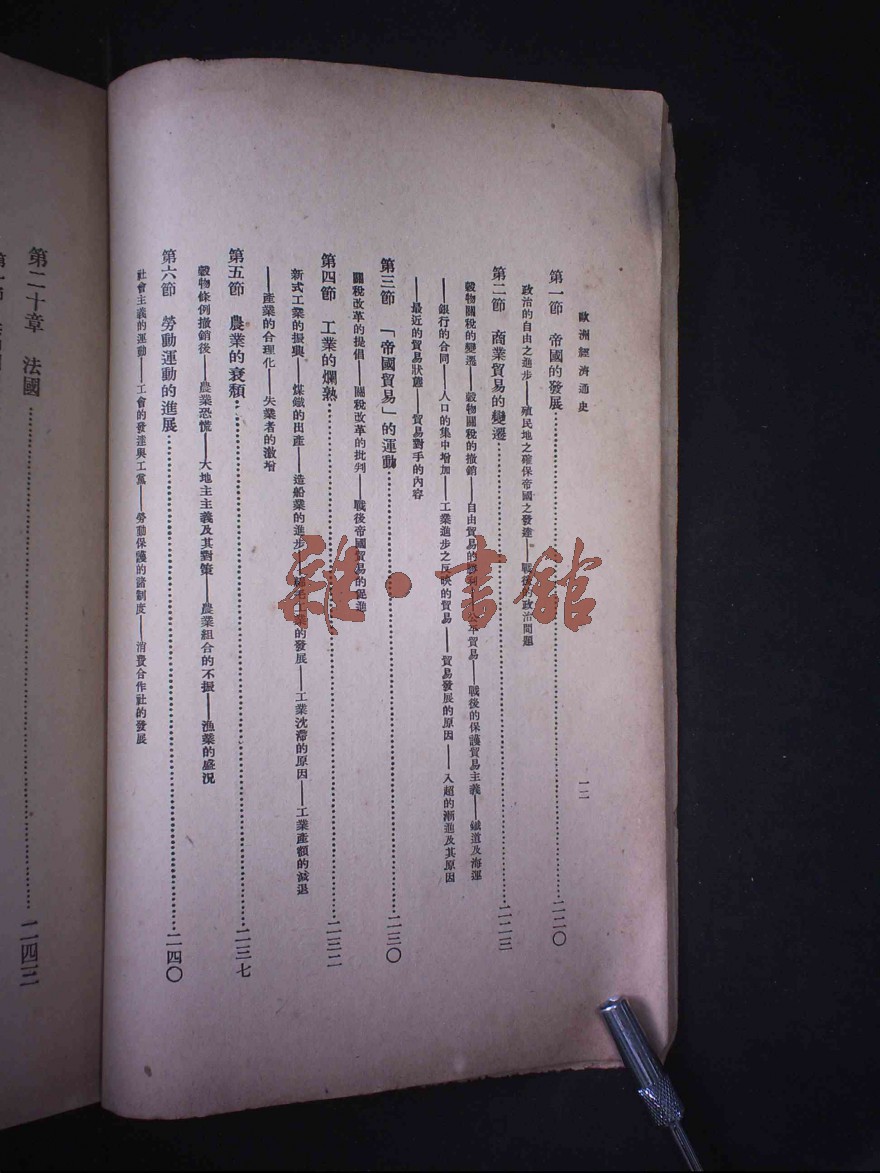 歐洲經濟通史
一二
第一節 帝國的發展……二二〇
政治的自由之進步——殖民地之確保帝國之發達——戰後的政治問題
第二節 商業貿易的變遷……二二三
穀物關稅的變遷——穀物關稅的撤銷——自由貿易的勝利——公平貿易——戰後的保護貿易主義——鐵道及海運
——銀行的合同——人口的集中增加——工業進步之反映的貿易——貿易發展的原因——入超的漸進及其原因
——最近的貿易狀態——貿易對手的內容
第三節 「帝國貿易」的運動……二三〇
關稅改革的提倡——關稅改革的批判——戰後帝國貿易的促進
第四節 工業的爛熟……二三二
新式工業的振興——煤鐵的出產——造船業的進步——工業的發展——工業沈滯的原因——工業產額的減退
——產業的合理化——失業者的激增
第五節 農業的衰頹……二三七
穀物條例撤銷後——農業恐慌——大地主主義及其對策——農業組合的不振——漁業的盛況
第六節 勞動運動的進展……二四〇
社會主義的運動——工會的發達與工黨——勞動保護的諸制度——消費合作社的發展
第二十章 法國……二四三
雜·書館